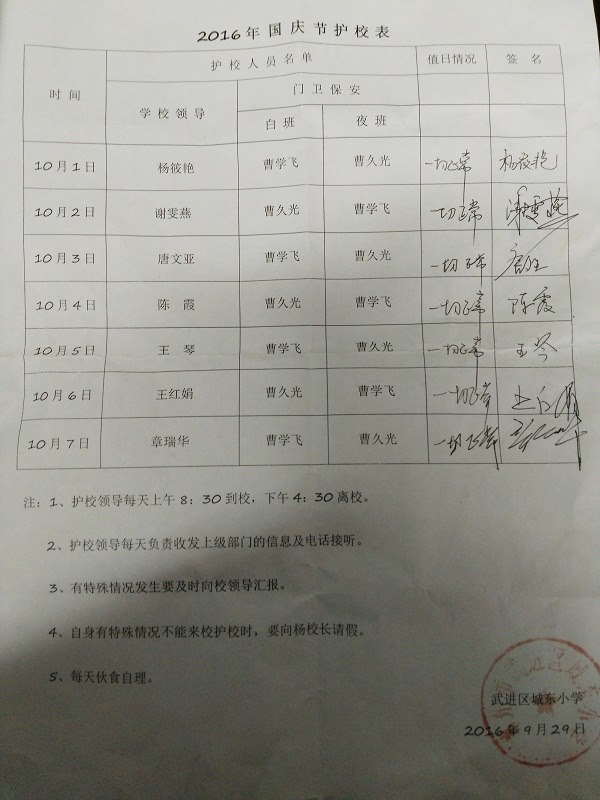 2016年国庆节护校表
时间 护校人员名单 值日情况 签名
学校领导 门卫保安
白班 夜班
10月1日 杨筱艳 曹学飞 曹久光 一切正常 杨筱艳
10月2日 谢雯燕 曹久光 曹学飞 一切正常 谢雯燕
10月3日 唐文亚 曹学飞 曹久光 一切正常
10月4日 陈霞 曹久光 曹学飞 一切正常 陈霞
10月5日 王琴 曹学飞 曹久光 一切正常 王琴
10月6日 王红娟 曹久光 曹学飞 一切正常
10月7日 章瑞华 曹学飞 曹久光 一切正常
注：1、护校领导每天上午8：30到校，下午4：30离校。
2、护校领导每天负责收发上级部门的信息及电话接听。
3、有特殊情况发生要及时向校领导汇报。
4、自身有特殊情况不能来校护校时，要向杨校长请假。
5、每天伙食自理。
武进区城东小学
2016年9月29日